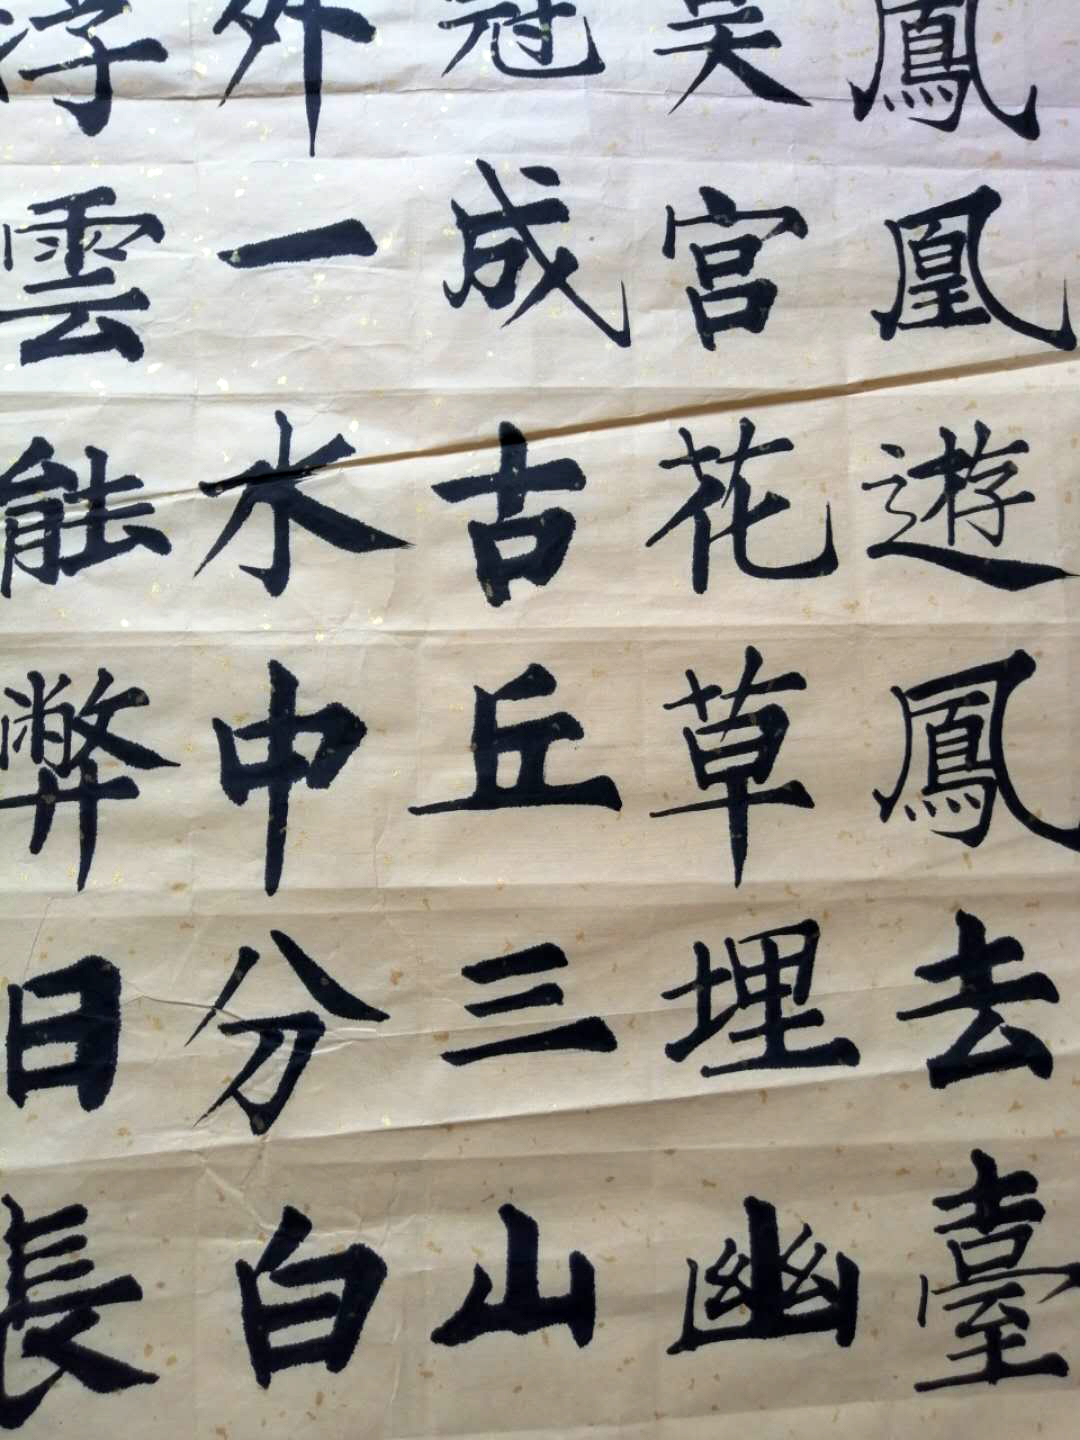 鳳凰遊鳳去臺
吴宫花草埋幽
冠成古丘三山
外一水中分白
浮雲能弊日長